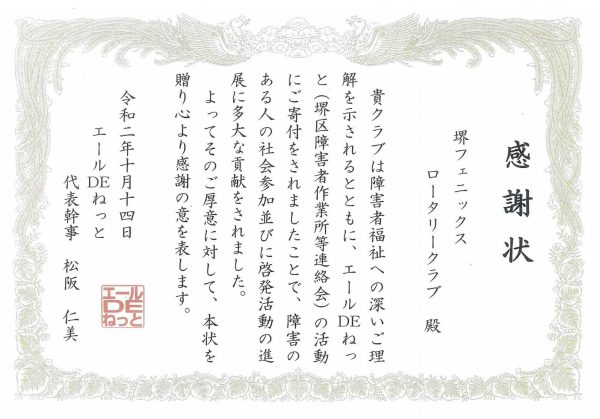 感謝状
堺フェニックス
ロータリークラブ 殿
貴クラブは障害者福祉への深いご理
解を示されるとともに、エールDEねっ
と（堺区障害者作業所等連絡会）の活動
にご寄付をされましたことで、障害の
ある人の社会参加並びに啓発活動の進
展に多大な貢献をされました。
よってそのご厚意に対して、本状を
贈り心より感謝の意を表します。
令和二年十月十四日
エールDEねっと
代表幹事 松阪 仁美
エール
DE
ねっと